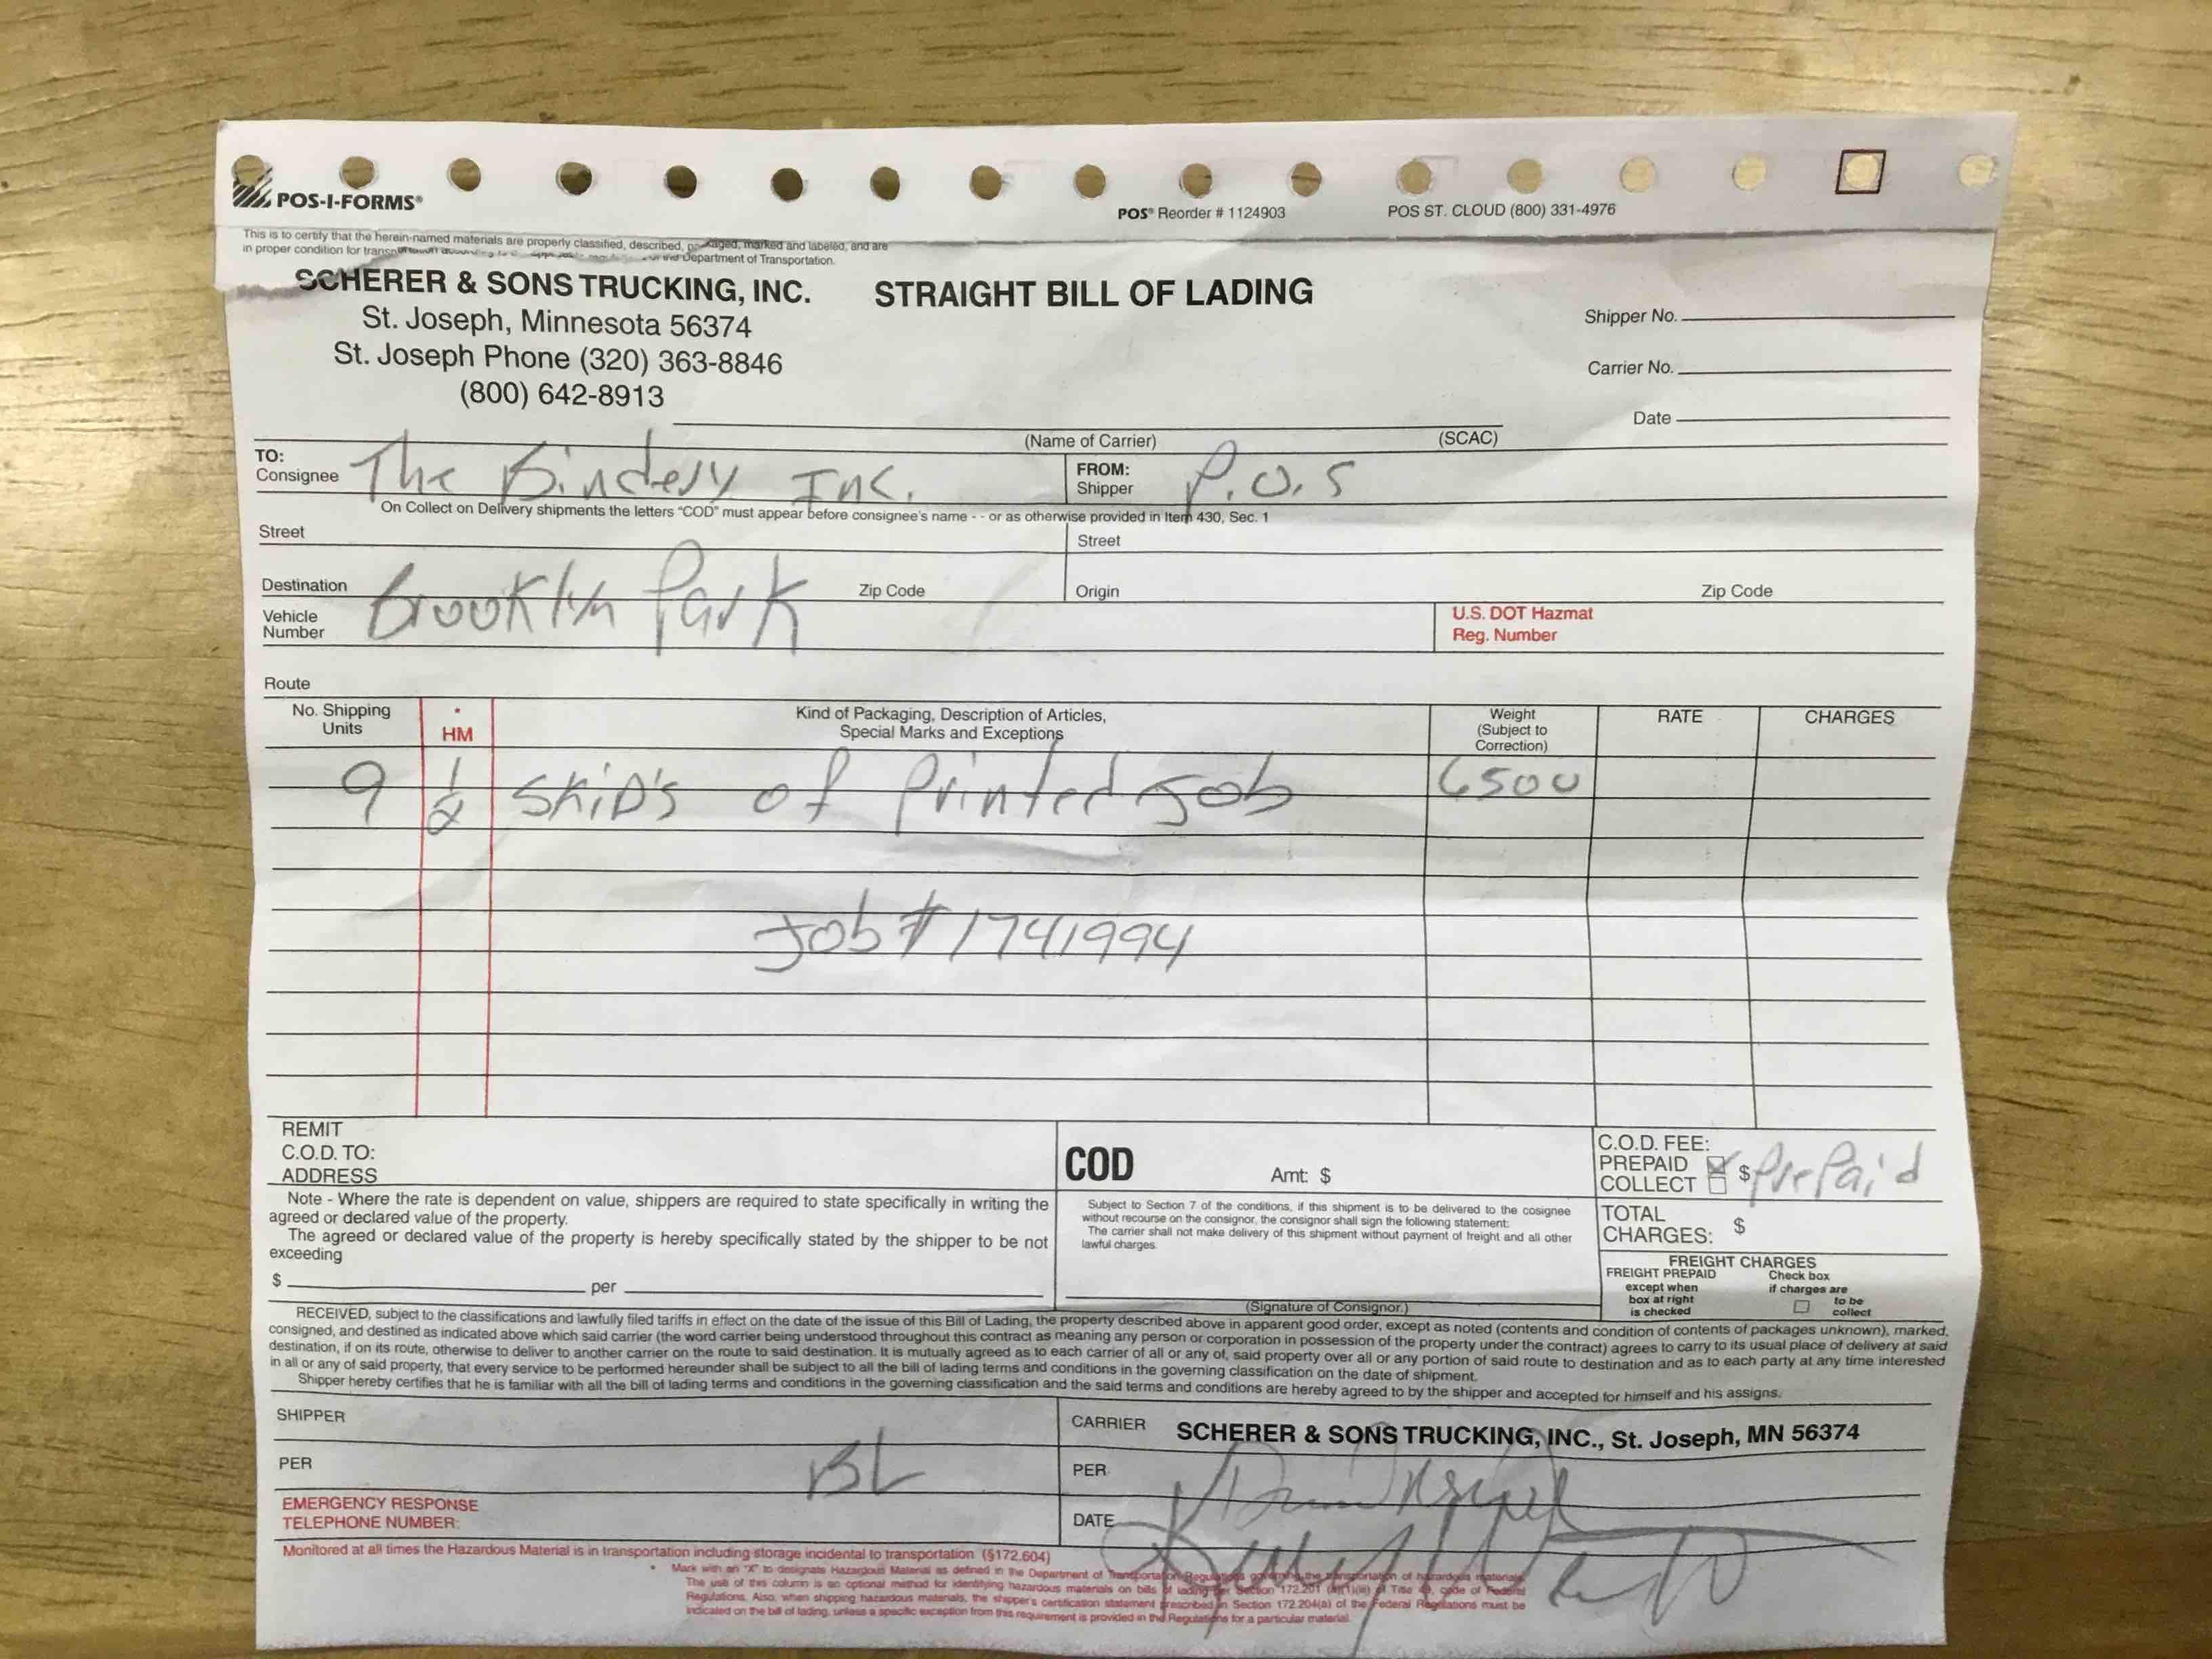 POS-I-FORMS®
POS® Reorder # 1124903
POS ST. CLOUD (800) 331-4976
This is to certify that the herein-named materials are properly classified, described, packaged, marked and labeled, and are
in proper condition for transportation Department of Transportation.
SCHERER & SONS TRUCKING, INC.
STRAIGHT BILL OF LADING
St. Joseph, Minnesota 56374
St. Joseph Phone (320) 363-8846
(800) 642-8913
Shipper No.
Carrier No.
Date
(Name of Carrier) (SCAC)
TO:
Consignee The Bindery Inc.
FROM:
Shipper P.O.S
On Collect on Delivery shipments the letters "COD" must appear before consignee's name - - or as otherwise provided in Item 430, Sec. 1
Street
Street
Destination Brooklyn Park Zip Code
Origin Zip Code
Vehicle
Number
U.S. DOT Hazmat
Reg. Number
Route
No. Shipping
Units
*
HM
Kind of Packaging, Description of Articles,
Special Marks and Exceptions
Weight
(Subject to
Correction)
RATE
CHARGES
9 1/2 SKID's of Printed Job 6500
Job # 1741994
REMIT
C.O.D. TO:
ADDRESS
COD Amt: $
C.O.D. FEE:
PREPAID $ PrePaid
COLLECT
Note - Where the rate is dependent on value, shippers are required to state specifically in writing the
agreed or declared value of the property.
The agreed or declared value of the property is hereby specifically stated by the shipper to be not
exceeding
$ per
Subject to Section 7 of the conditions, if this shipment is to be delivered to the cosignee
without recourse on the consignor, the consignor shall sign the following statement:
The carrier shall not make delivery of this shipment without payment of freight and all other
lawful charges.
(Signature of Consignor.)
TOTAL
CHARGES: $
FREIGHT CHARGES
FREIGHT PREPAID
except when
box at right
is checked
Check box
if charges are
to be
collect
RECEIVED, subject to the classifications and lawfully filed tariffs in effect on the date of the issue of this Bill of Lading, the property described above in apparent good order, except as noted (contents and condition of contents of packages unknown), marked,
consigned, and destined as indicated above which said carrier (the word carrier being understood throughout this contract as meaning any person or corporation in possession of the property under the contract) agrees to carry to its usual place of delivery at said
destination, if on its route, otherwise to deliver to another carrier on the route to said destination. It is mutually agreed as to each carrier of all or any of, said property over all or any portion of said route to destination and as to each party at any time interested
in all or any of said property, that every service to be performed hereunder shall be subject to all the bill of lading terms and conditions in the governing classification on the date of shipment.
Shipper hereby certifies that he is familiar with all the bill of lading terms and conditions in the governing classification and the said terms and conditions are hereby agreed to by the shipper and accepted for himself and his assigns.
SHIPPER
CARRIER SCHERER & SONS TRUCKING, INC., St. Joseph, MN 56374
PER BL
PER
EMERGENCY RESPONSE
TELEPHONE NUMBER:
DATE
Monitored at all times the Hazardous Material is in transportation including storage incidental to transportation (§172.604)
* Mark with an "X" to designate Hazardous Material as defined in the Department of Transportation Regulations governing the transportation of hazardous materials.
The use of this column is an optional method for identifying hazardous materials on bills of lading per Section 172.201 (a)(1)(iii) of Title 49, code of Federal
Regulations. Also, when shipping hazardous materials, the shipper's certification statement prescribed in Section 172.204(a) of the Federal Regulations must be
indicated on the bill of lading, unless a specific exception from this requirement is provided in the Regulations for a particular material.